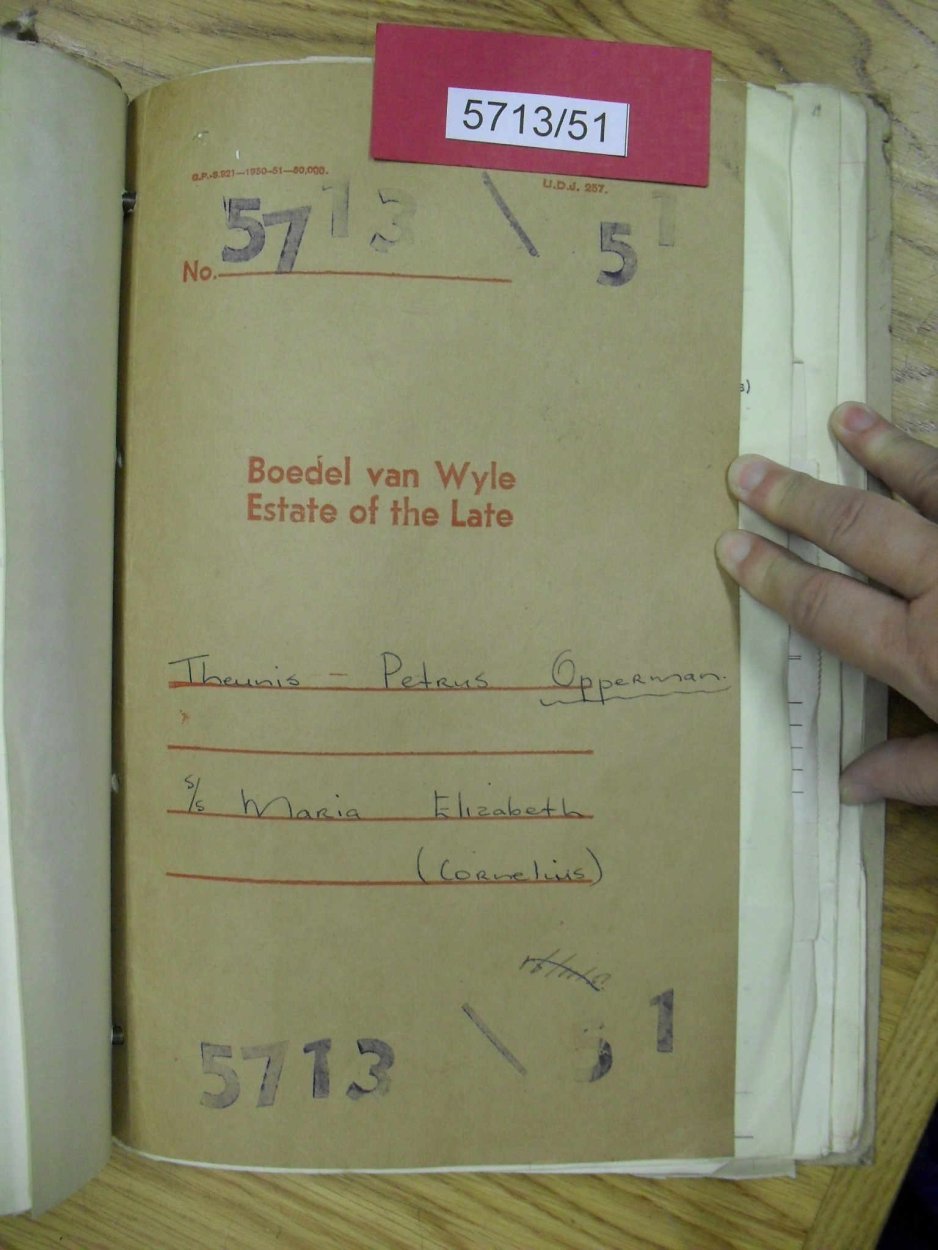 5713/51
G.P.-S.921—1950-51—50,000.
U.D.J. 257.
5713 \ 51
No.
Boedel van Wyle
Estate of the Late
Theunis - Petrus Opperman.
s/s Maria Elizabeth
(Cornelius)
5713 \ 51